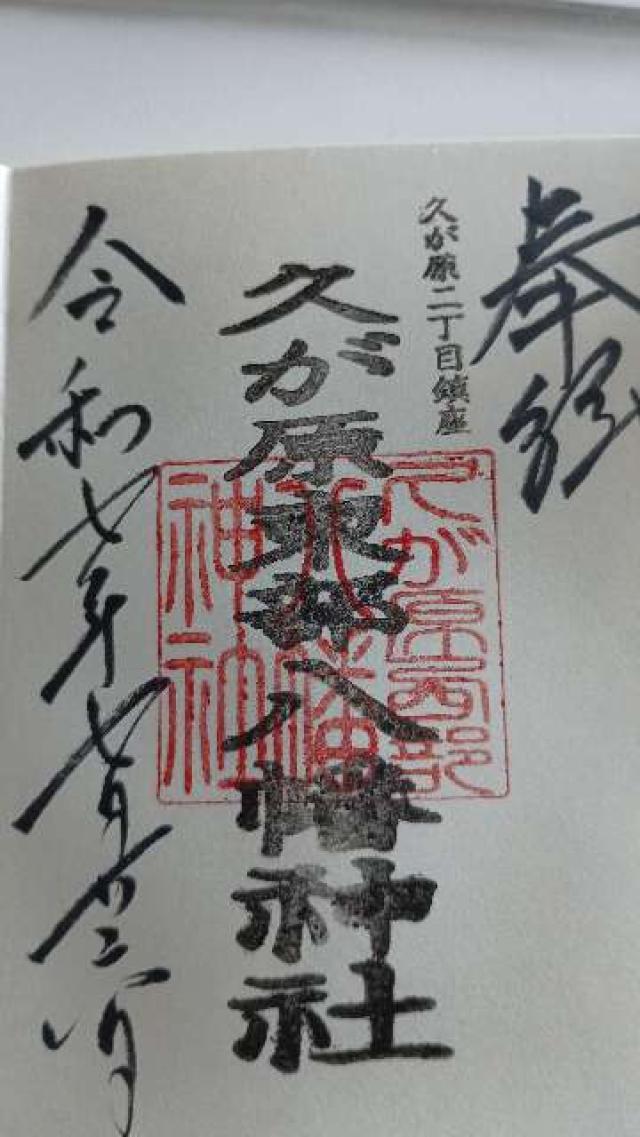 奉拝
久が原二丁目鎮座
久が原東部八幡神社
久が原 部
八幡
神社
令和七年七月 日